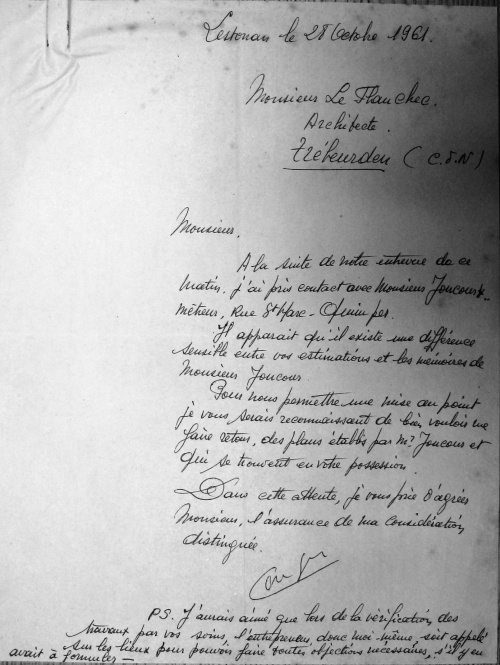 Lestonan le 28 Octobre 1961.
Monsieur Le Flanchec.
Architecte.
Trébeurden (C.d.N)
Monsieur.
A la suite de notre entrevue de ce
matin, j'ai pris contact avec Monsieur Joncour
métreur, Rue St Marc - Quimper.
Il apparait qu'il existe une différence
sensible entre vos estimations et les mémoires de
Monsieur Joncour.
Pour nous permettre une mise au point
je vous serais reconnaissant de bien vouloir me
faire retour, des plans établis par Mr. Joncour et
qui se trouvent en votre possession.
Dans cette attente, je vous prie d'agréer
Monsieur, l'assurance de ma considération
distinguée.
P.S. J'aurais aimé que lors de la vérification des
travaux par vos soins, l'entrepreneur, donc moi-même, soit appelé
sur les lieux pour pouvoir faire toutes objections nécessaires, s'il y en
avait à formuler -